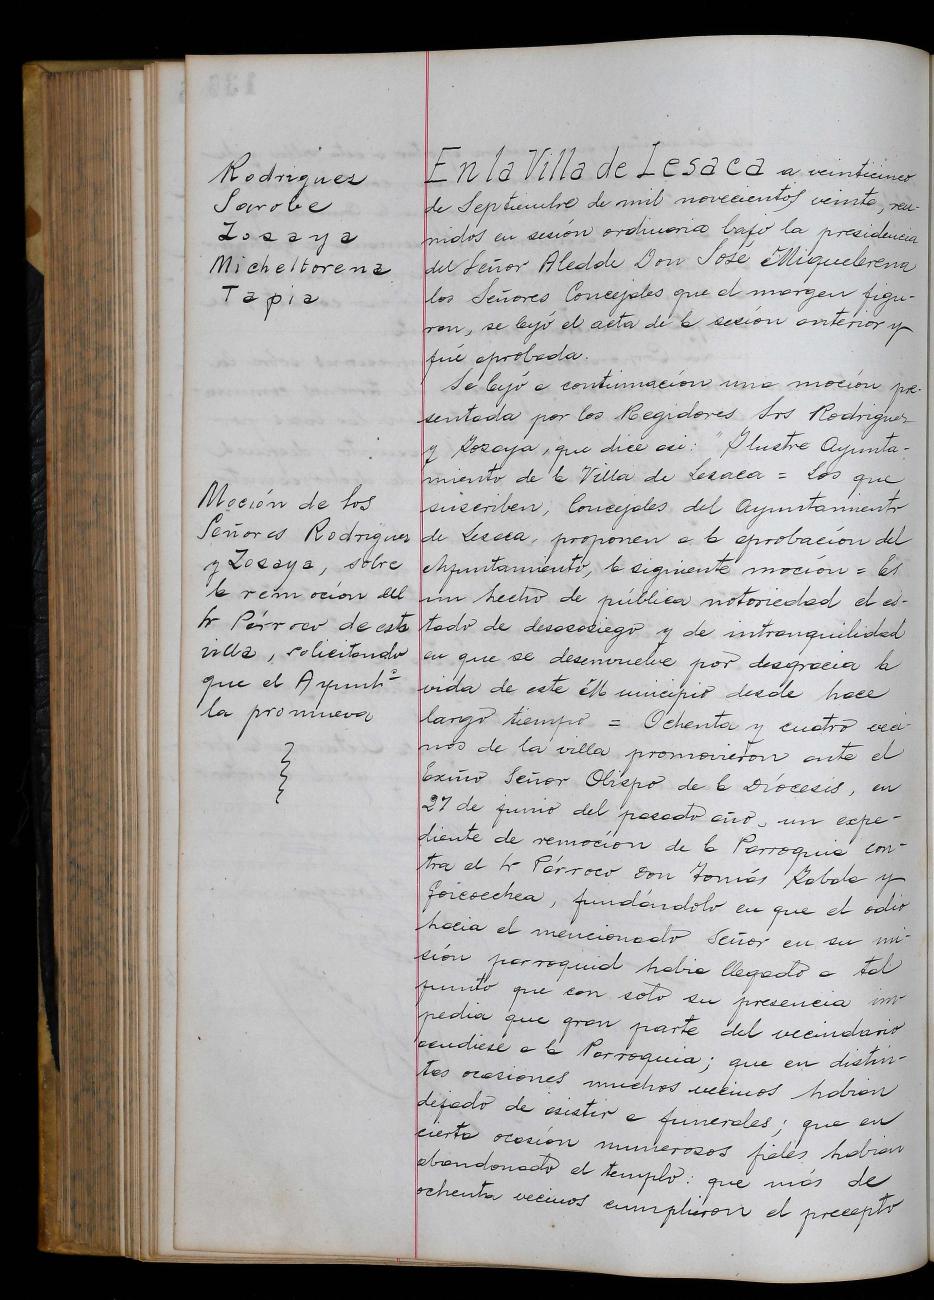 Rodriguez
Sarobe
Zozaya
Micheltorena
Tapia
Moción de los
Señores Rodriguez
y Zozaya, sobre
la remoción del
Sr Párroco de esta
villa, solicitando
que el Ayuntº
la promueva
En la Villa de Lesaca a veinticinco
de Septiembre de mil novecientos veinte, reu-
nidos en sesión ordinaria bajo la presidencia
del Señor Alcalde Don José Miquelerena
los Señores Concejales que al margen figu-
ran, se leyó el acta de la sesión anterior y
fué aprobada.
Se leyó a continuación una moción pre-
sentada por los Regidores Srs Rodriguez
y Zozaya, que dice asi: "Ilustre Ayunta-
miento de la Villa de Lesaca = Los que
suscriben, Concejales del Ayuntamiento
de Lesaca, proponen a la aprobación del
Ayuntamiento, la siguiente moción = Es
un hecho de pública notoriedad el es-
tado de desasosiego y de intranquilidad
en que se desenvuelve por desgracia la
vida de este Municipio desde hace
largo tiempo = Ochenta y cuatro veci-
nos de la villa promovieron ante el
Exmo Señor Obispo de la Diócesis, en
27 de junio del pasado año, un expe-
diente de remoción de la Parroquia con-
tra el Sr Párroco Don Tomás Zabala y
Goicoechea, fundándolo en que el odio
hacia el mencionado Señor en su mi-
sión parroquial habia llegado a tal
punto que con solo su presencia im-
pedia que gran parte del vecindario
acudiese a la Parroquia; que en distin-
tas ocasiones muchos vecinos habian
dejado de asistir a funerales; que en
cierta ocasión numerosos fieles habian
abandonado el templo: que más de
ochenta vecinos cumplieron el precepto